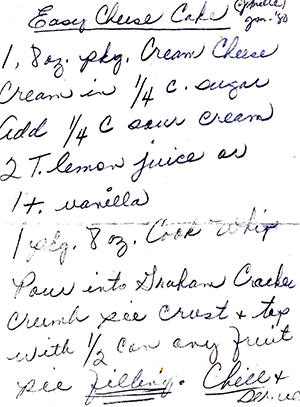 Easy Cheese Cake
Jan. '80
1, 8 oz. pkg. Cream Cheese
Cream in 1/4 c. sugar
Add 1/4 C sour cream
2 T. lemon juice or
1 t. vanilla
1 pkg. 8 oz. Cool Whip
Pour into Graham Cracker
crumb pie crust & top
with 1/2 can any fruit
pie filling. Chill &